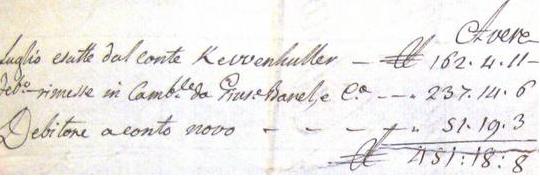 Avere
Luglio esatte dal conte Kevvenhuller — ₶ 162.4.11-
feb.º rimesse in Camb.le da Gius.e e C.º — „ 237.14.6
Debitore a conto novo - - - „ 51.19.3
₶ 451:18:8